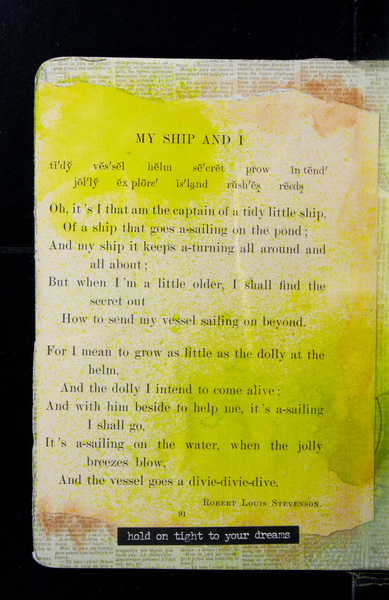 MY SHIP AND I
tī′dy̆ vĕs′sĕl hĕlm sē′crĕt prow ĭn tĕnd′
jŏl′ly̆ ĕx plōre′ īs′lạnd rŭsh′ĕș reeds
Oh, it's I that am the captain of a tidy little ship,
Of a ship that goes a-sailing on the pond;
And my ship it keeps a-turning all around and
all about;
But when I'm a little older, I shall find the
secret out
How to send my vessel sailing on beyond.
For I mean to grow as little as the dolly at the
helm,
And the dolly I intend to come alive;
And with him beside to help me, it's a-sailing
I shall go,
It's a-sailing on the water, when the jolly
breezes blow,
And the vessel goes a divie-divie-dive.
ROBERT LOUIS STEVENSON.
91
hold on tight to your dreams